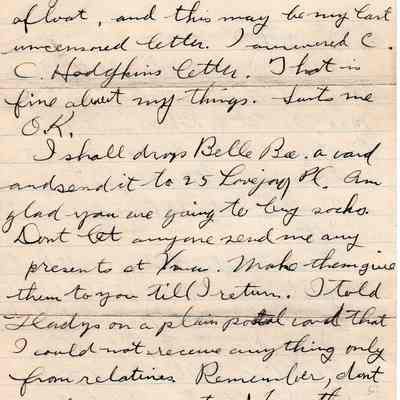 of that, and this may be my last
uncensored letter. I answered C.
C. Hodgkins letter. That is
fine about my things. Suits me
O.K.
I shall drop Belle Bee. a card
and send it to 25 Lovejoy Pl. Am
glad you are going to try socks.
Dont let anyone send me any
presents at Xmas. Make them give
them to you till I return. I told
Gladys on a plain postal card that
I could not receive anything only
from relatives. Remember, dont